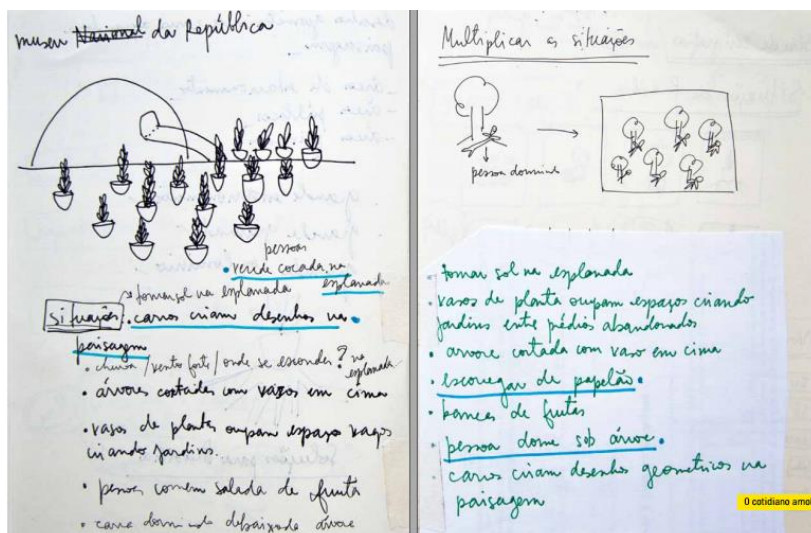 museu Nacional da República
pessoas
• vende cocada na
esplanada
→ tomar sol na esplanada
situações • carros criam desenhos na
paisagem
• chuva / vento forte / onde se esconder? na
esplanada
• árvores cortadas com vazos em cima
• vasos de plantas ocupam espaços vagos
criando jardins.
• pessoas comem salada de fruta
• cara dormindo debaixo da árvore
Multiplicar as situações
pessoa dormindo
• tomar sol na esplanada
• vasos de planta ocupam espaços criando
jardins entre prédios abandonados
• árvore cortada com vaso em cima
• escorregar de papelão •
• bancas de frutas
• pessoa dorme sob árvore •
• carros criam desenhos geometricos na
paisagem
O cotidiano amo